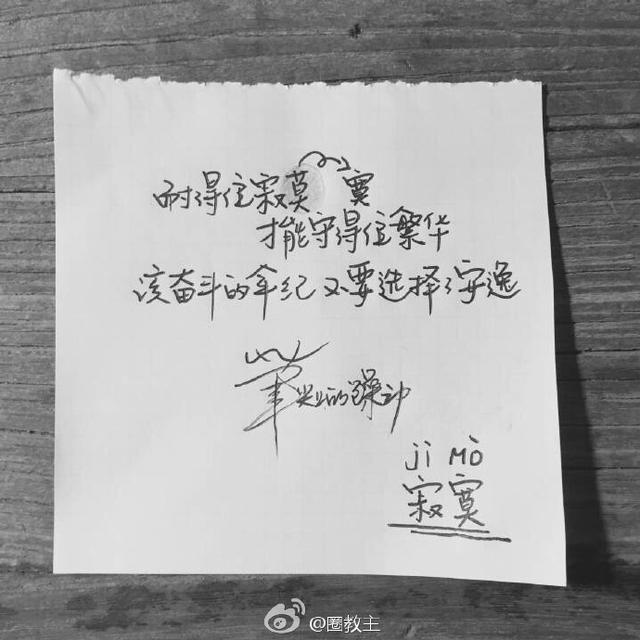 耐得住寂莫 寞
才能守得住繁华
该奋斗的年纪不要选择了安逸
的躁动
jì mò
寂寞
@圈教主